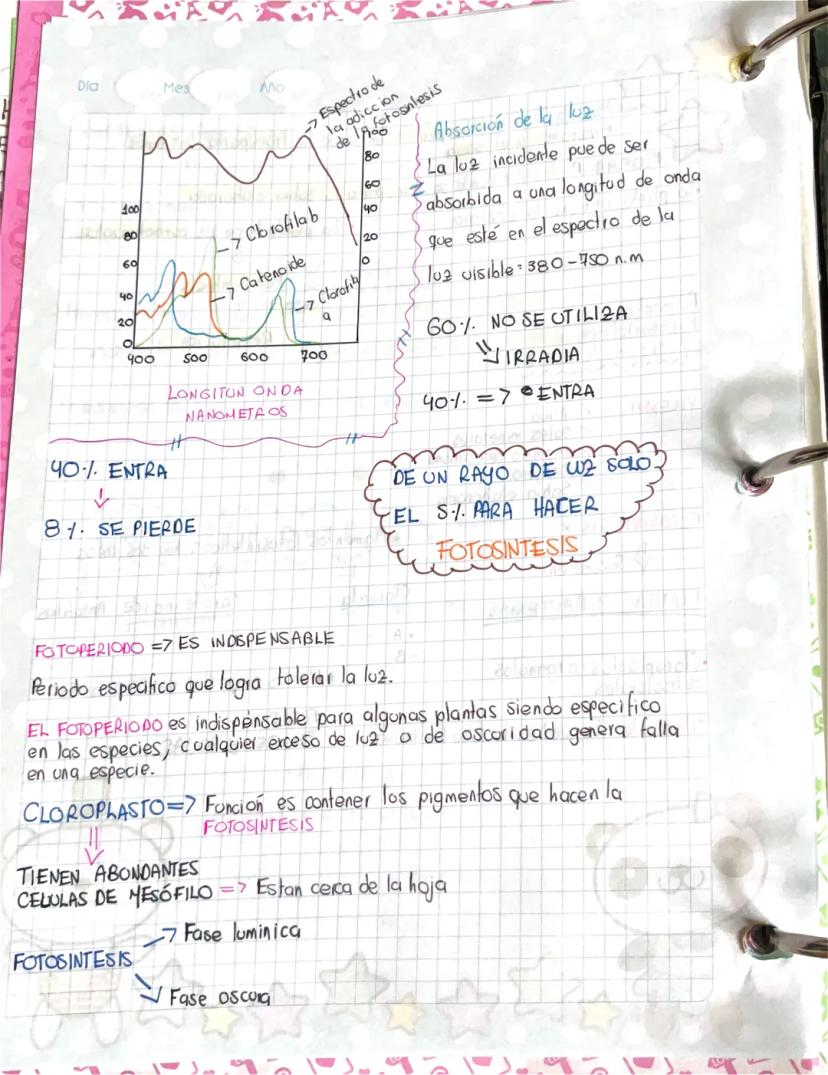 Día Mes Año
Espectro de
la adiccion
de la fotosintesis
100
80
60
40
20
0
100
80
60
40
20
0
Clorofila b
Catenoide
Clorofila
a
400 500 600 700
LONGITUN ONDA
NANOMETROS
Absorción de la luz
La luz incidente puede ser
absorbida a una longitud de onda
que esté en el espectro de la
luz visible = 380-750 n.m
60% NO SE UTILIZA
IRRADIA
40% => ENTRA
40% ENTRA
8% SE PIERDE
DE UN RAYO DE LUZ SOLO
EL 5% PARA HACER
FOTOSINTESIS
FOTOPERIODO => ES INDISPENSABLE
Periodo especifico que logra tolerar la luz.
EL FOTOPERIODO es indispensable para algunas plantas siendo especifico
en las especies, cualquier exceso de luz o de oscuridad genera falla
en una especie.
CLOROPLASTO => Función es contener los pigmentos que hacen la
FOTOSINTESIS
TIENEN ABONDANTES
CELULAS DE MESÓFILO => Estan cerca de la hoja
FOTOSINTESIS
Fase luminica
Fase oscura